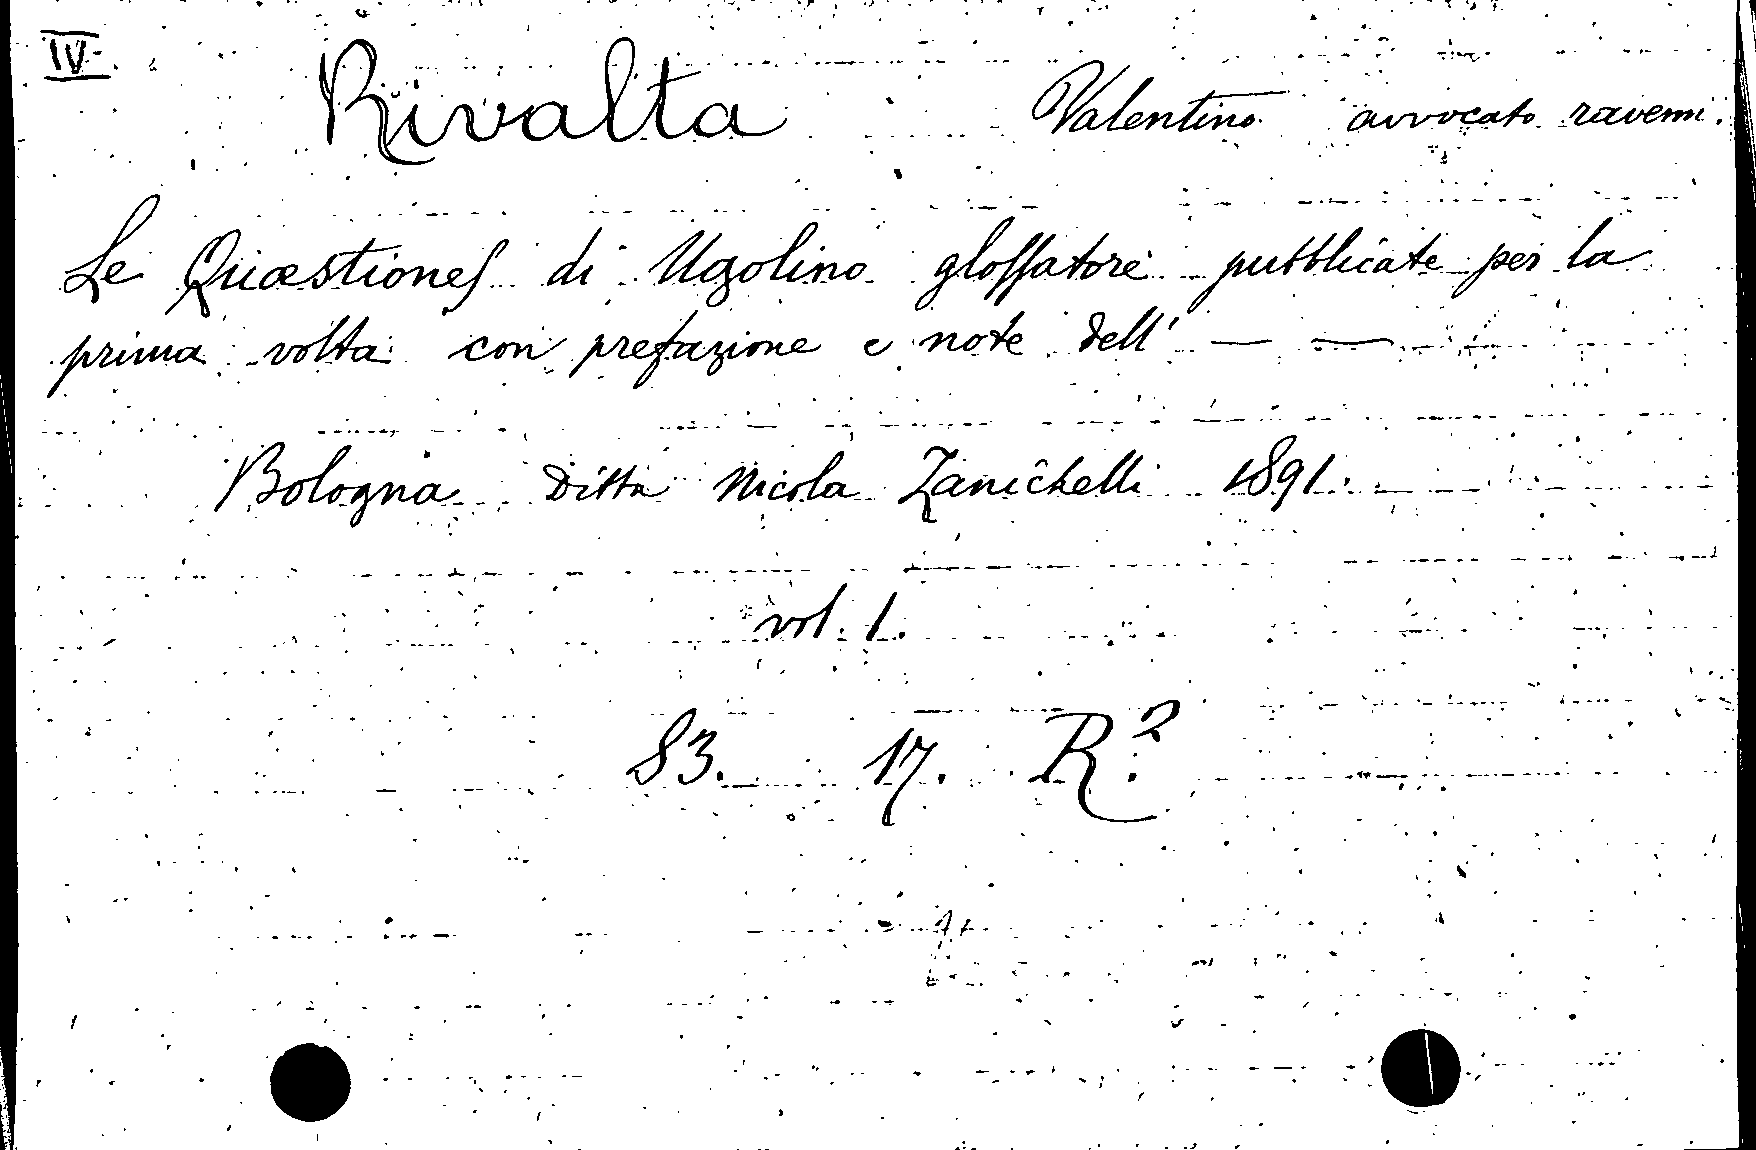 IV.
Rivalta Valentino avvocato ravenn.
Le Quæstiones di Ugolino glossatore pubblicate per la
prima volta con prefazione e note dell' — —
Bologna Ditta Nicola Zanichelli 1891.
vol. 1.
83. 17. R.²